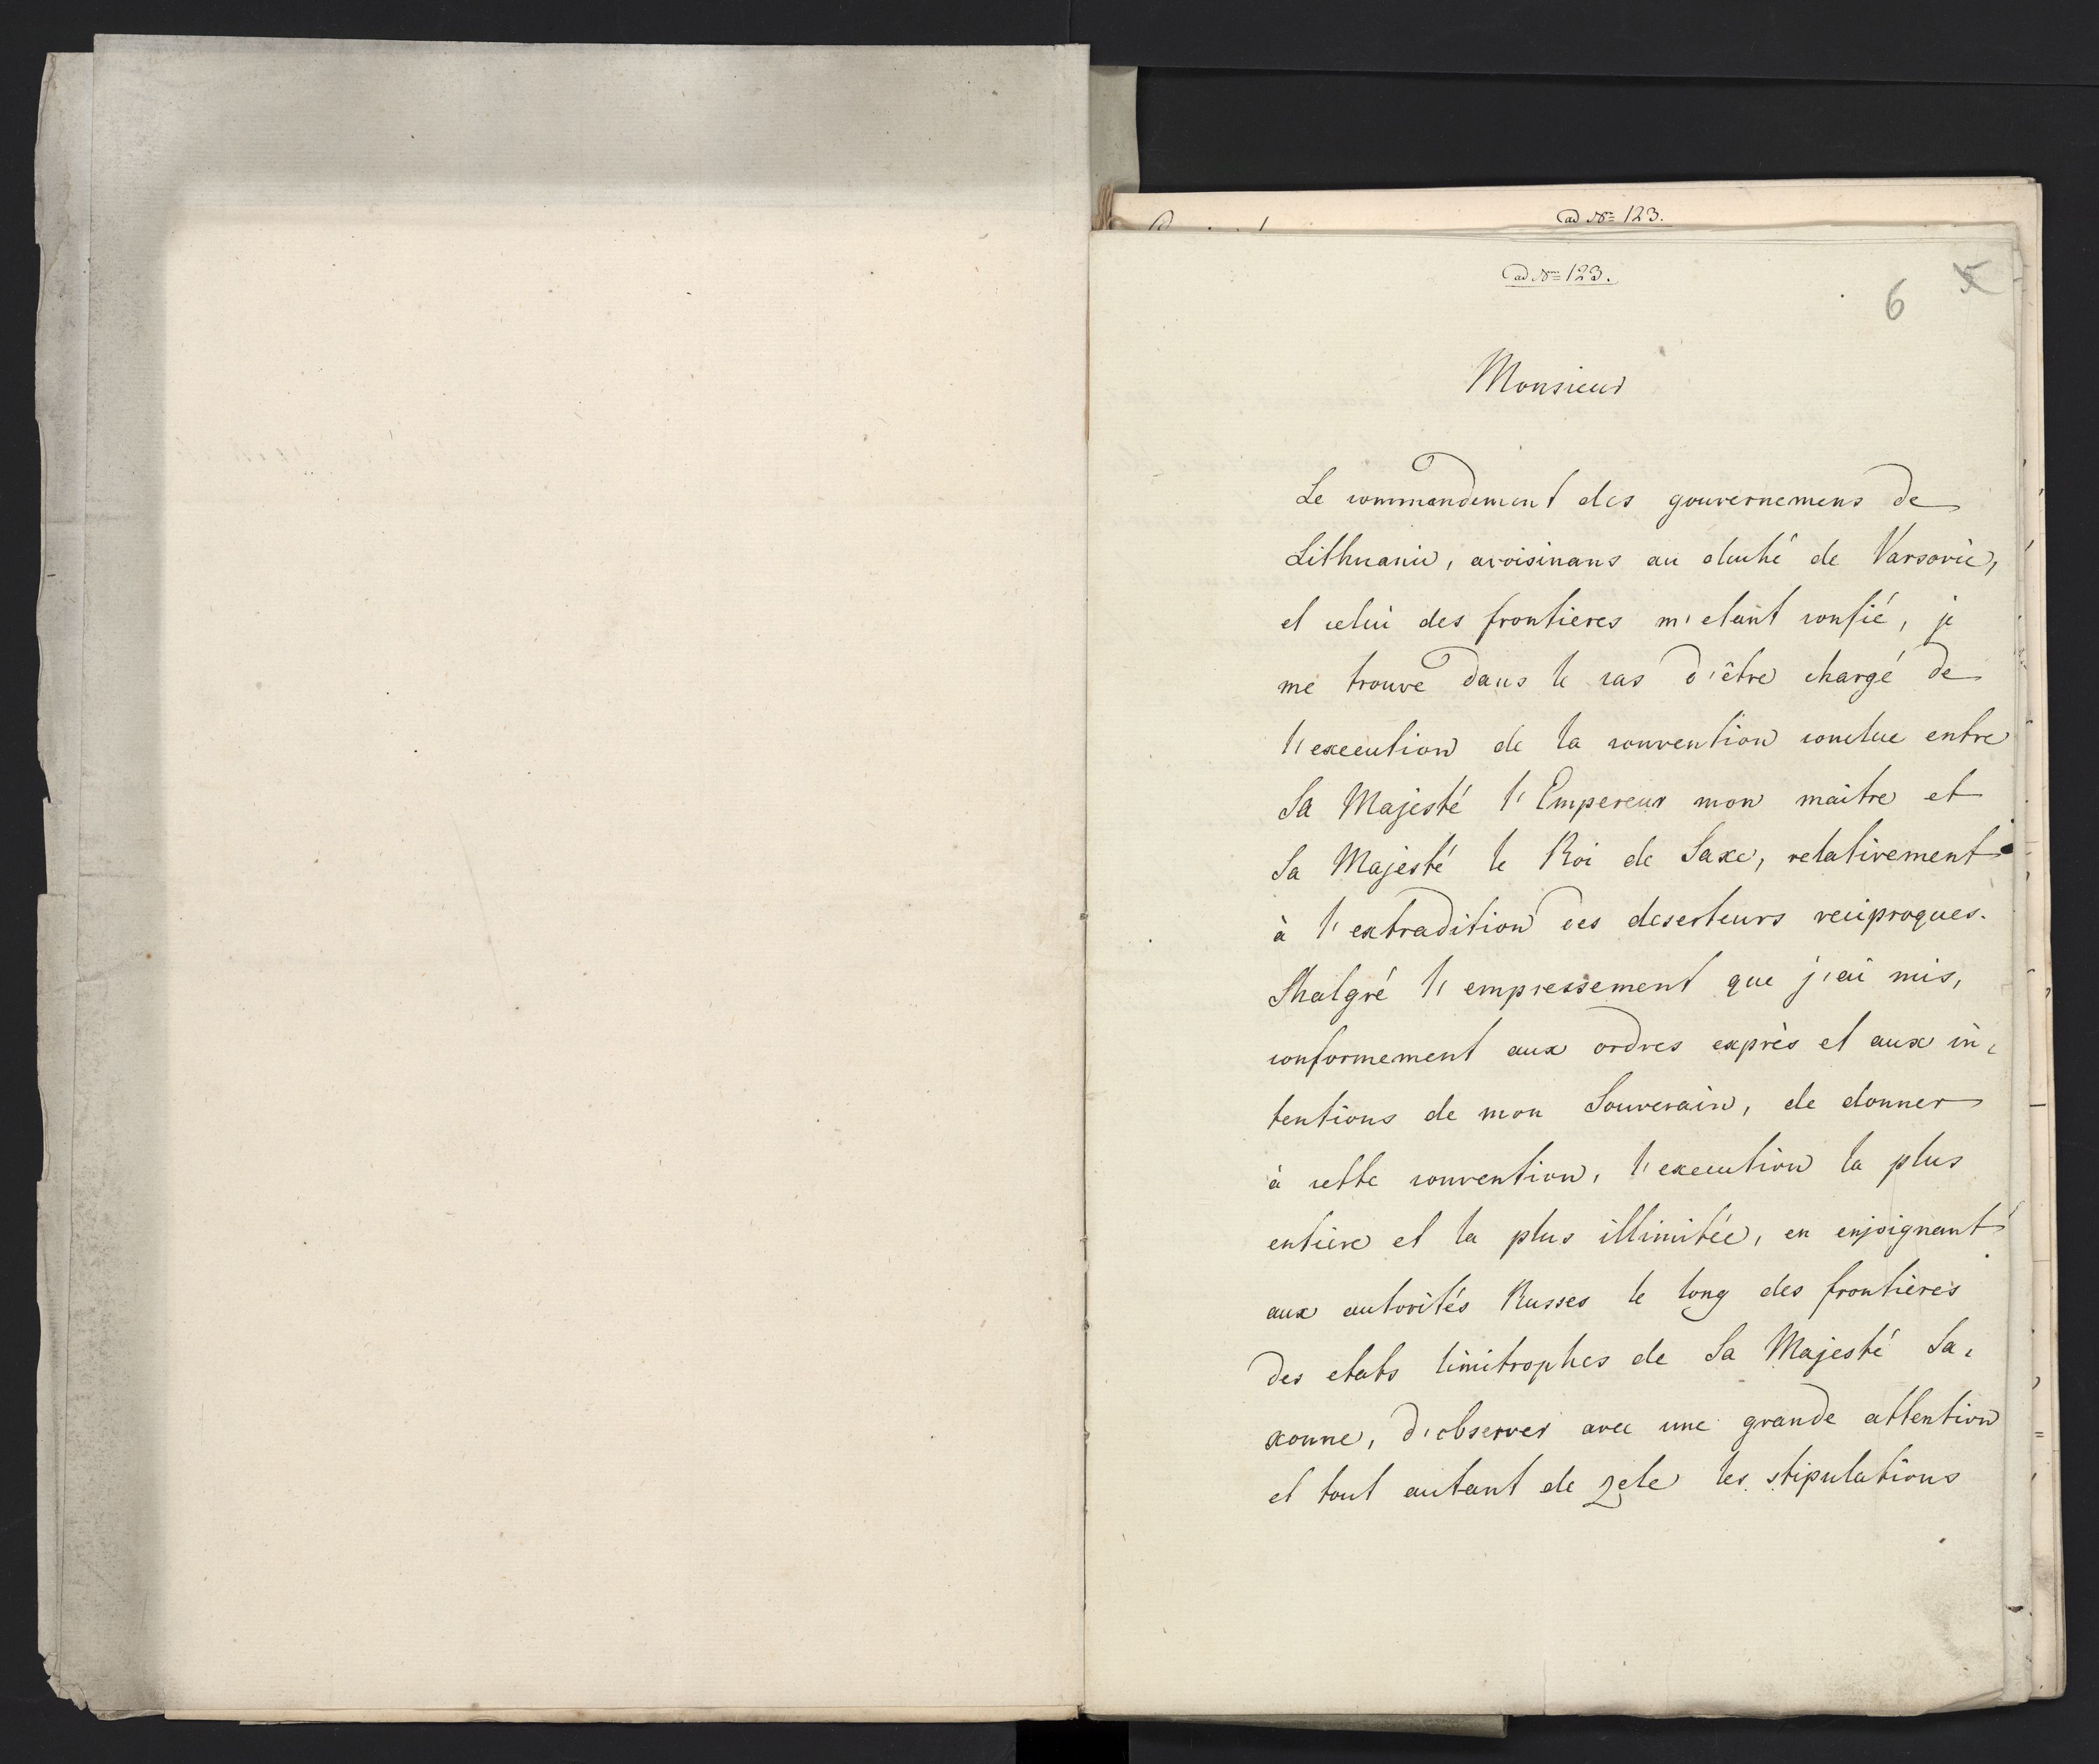 ad Nr= 123.
ad Nr= 123.
6 5
Monsieur
Le commandement des gouvernemens de
Lithuanie, avoisinans au duché de Varsovie,
et celui des frontieres m'etant confié, je
me trouve dans le cas d'être chargé de
l'execution de la convention conclue entre
Sa Majesté l'Empereur mon maitre et
Sa Majesté le Roi de Saxe, relativement
à l'extradition des deserteurs reciproques.
Malgré l'empressement que j'ai mis,
conformement aux ordres exprès et aux in-
tentions de mon Souverain, de donner
à cette convention, l'execution la plus
entiere et la plus illimitée, en enjoignant
aux autorités Russes le long des frontières
des etats limitrophes de Sa Majesté Sa-
xonne, d'observer avec une grande attention
et tout autant de zele les stipulations